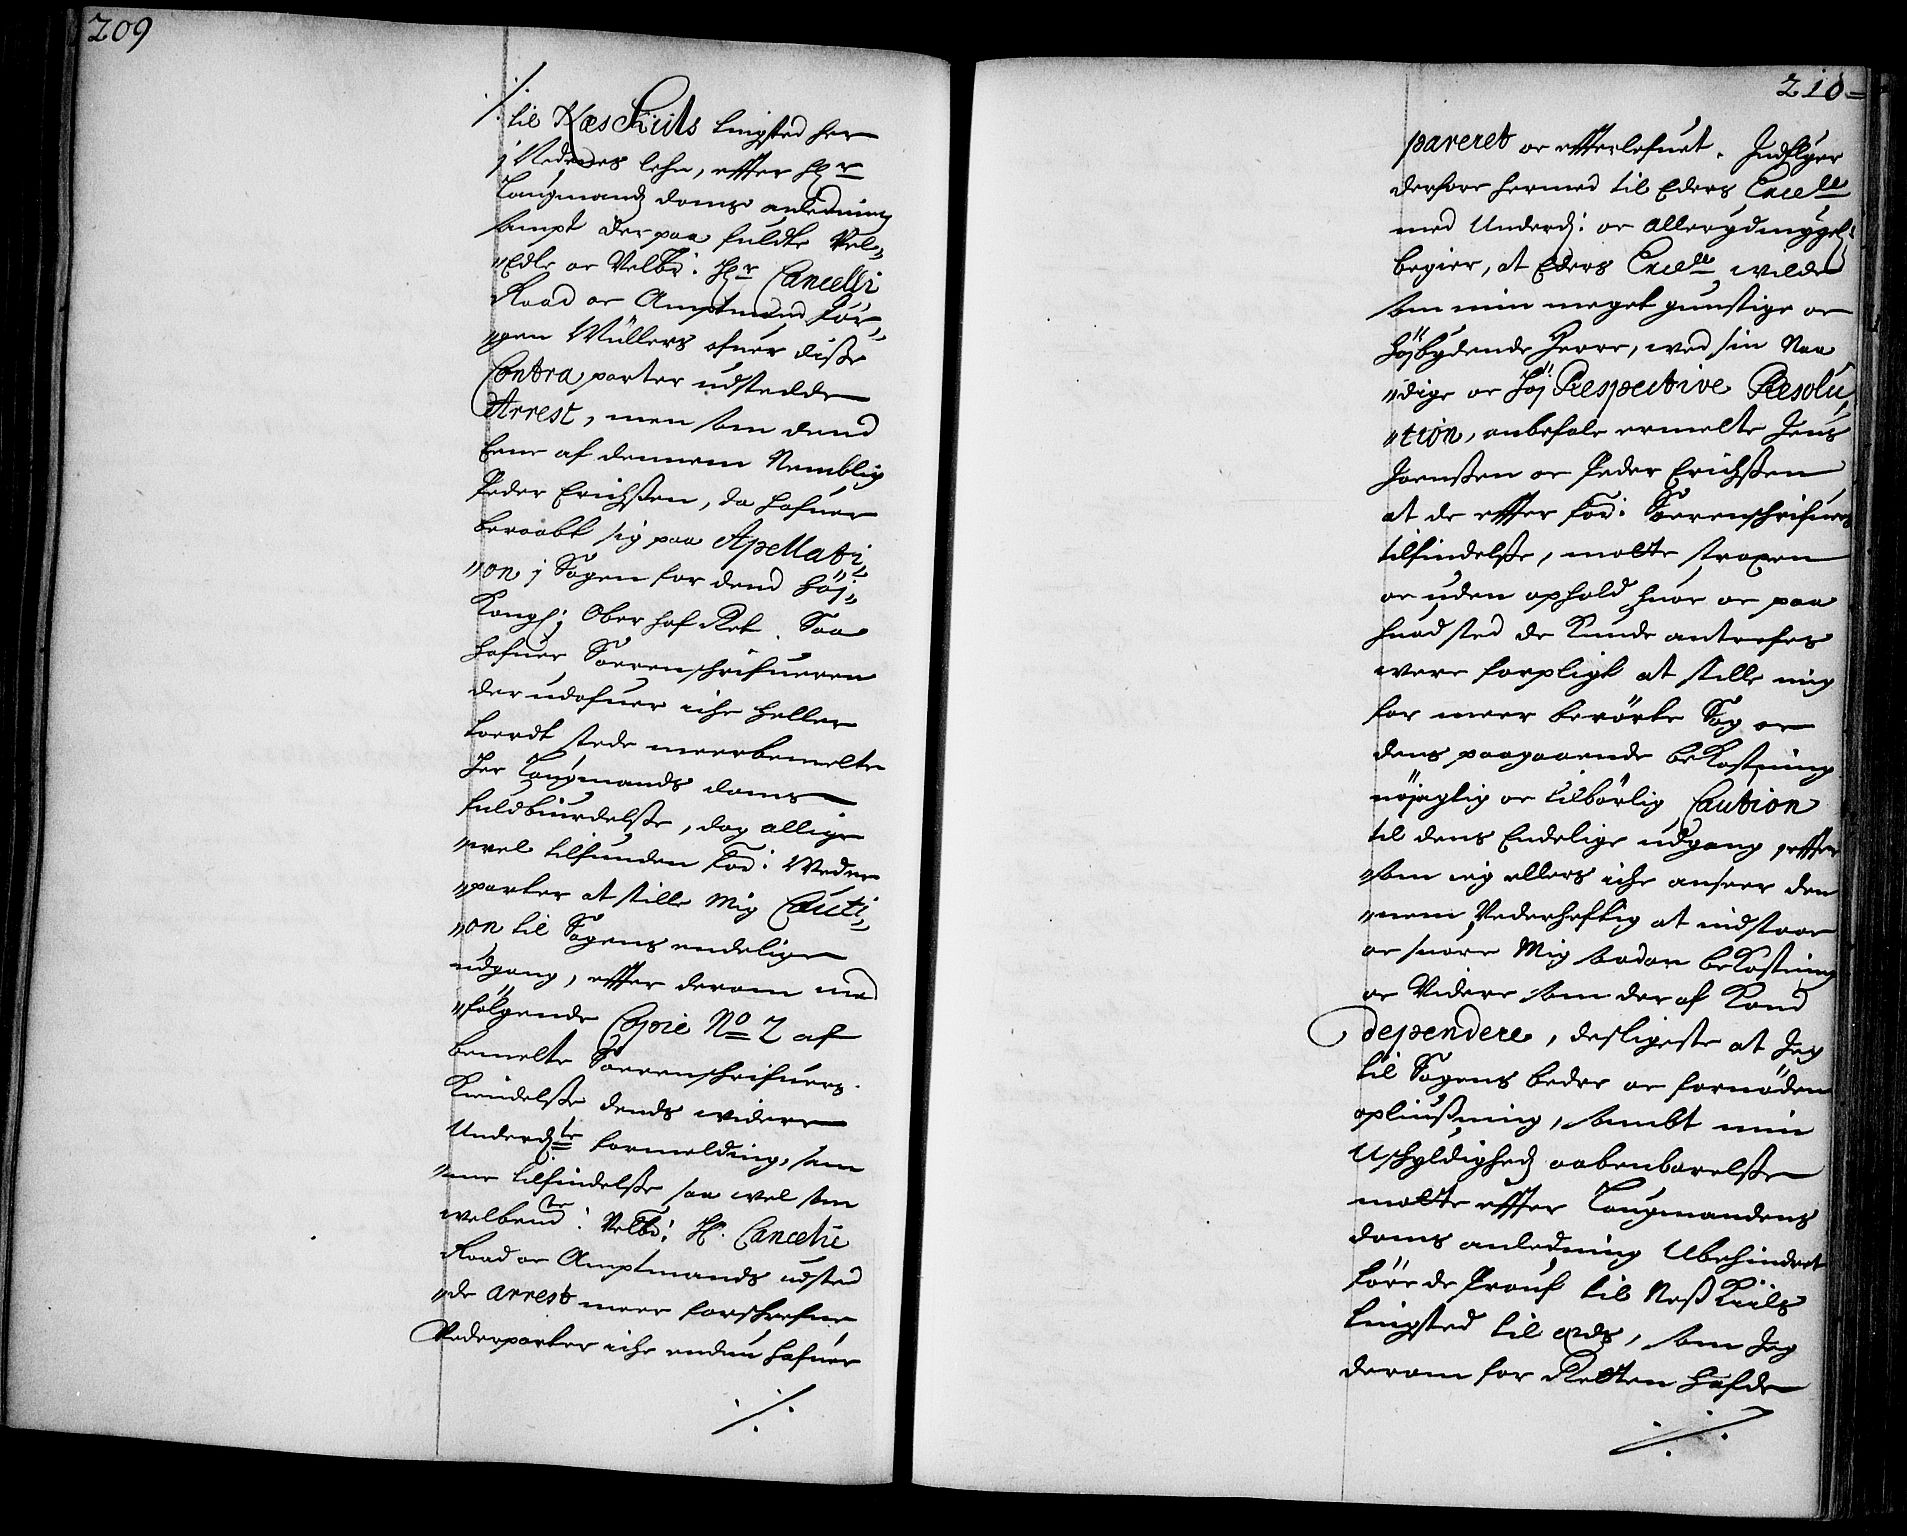 209
./.
til Næs Kiils tingsted her
j Nedenes lehn, effter Hr
Laugmands doms anledning
sampt der paa fuldte Vel„
„Edle oc Velbr: Hr Cancelli
Raad oc Amptmand Jør„
„gen Müllers ofuer disse
Contra parter udstedde
Arrest, men som dend
Eene af dennem Nemblig
Peder Erichssen, da hafuer
beraabt sig paa Apellati„
„on j Sagen for dend höj„
Kongl: Ober hof Ret. Saa
hafuer Sorenschrifueren
der udofuer iche heller
tordt stede meerbemelte
Her Laugmands doms
fuldbiurdelsse, dog allige
„wel tilfunden Fod: Weder
„parter at stille Mig Cauti„
„on til Sagens endelige
udgang, effter derom med
„følgende Copie No 2 af
bemelte Sorenschrifuers
Kiendelsse dends widere
Underdte formelding, sam
„me tilfindelsse saa wel som
welbemte: Velbr: Hr. Cancelie
Raad oc Amptmands udsted
„de arrest meer forschrefne
Wederparter iche endnu hafuer
./.
210
pareret oc effterlefuet. Indflyer
derfore hermed til Eders Excelle
med Underd: oc allerydmygel:
begier, at Eders Excelle wilde
som min meget gunstige oc
höjbydende Herre, wed sin Naa
„dige oc Höj: Respective Resolu„
„tion, anbefale ermelte Jens
Joenssen oc Peder Erichssen
at de effter Fod: Sorenschrifuers
tilfindelsse, motte straxen
oc uden ophold huor oc paa
huad sted de Kunde antrefes
were forpligt at stille mig
for meer berörte Sag oc
dens paagaaende bekostning
nöjagtig oc tilbörlig Caution
til dens Endelige udgang, effter
„som ieg ellers iche anseer den
„nem Vederheftig at udstaae
oc suare Mig sadan bekostning
oc Videre som der af Kand
dependere, desligeste at Jeg
til Sagens bedre oc fornöden
opliussning, sambt min
Uschyldigheds aabenbarelsse
motte effter Laugmandens
doms anledning Ubehindret
före de Prouf til Ness Kiils
tingsted til eds, som Jeg
derom for Retten hafde
./.